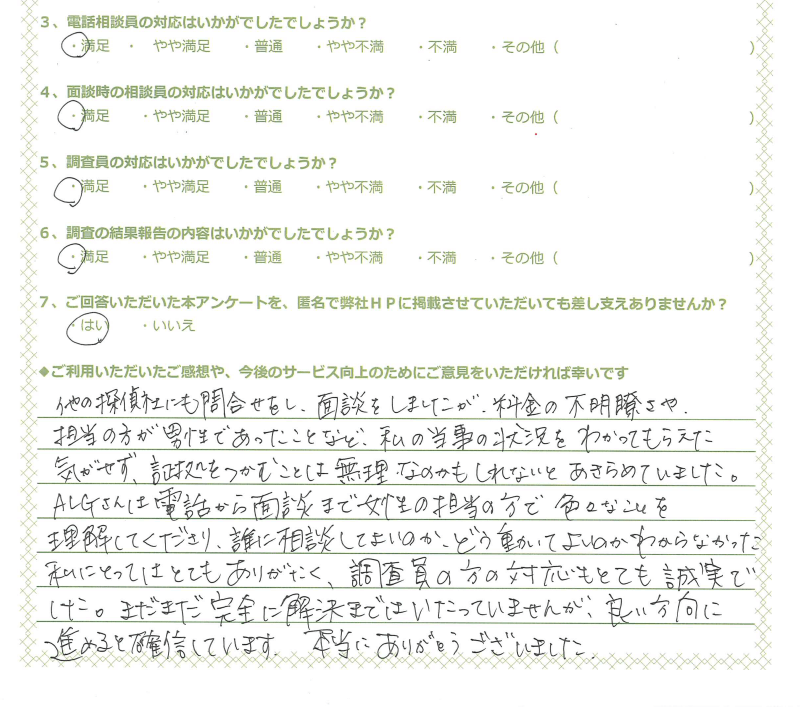 3、電話相談員の対応はいかがでしたでしょうか？
・満足 ・ やや満足 ・普通 ・やや不満 ・不満 ・その他（ ）
4、面談時の相談員の対応はいかがでしたでしょうか？
・満足 ・やや満足 ・普通 ・やや不満 ・不満 ・その他（ ）
5、調査員の対応はいかがでしたでしょうか？
・満足 ・やや満足 ・普通 ・やや不満 ・不満 ・その他（ ）
6、調査の結果報告の内容はいかがでしたでしょうか？
・満足 ・やや満足 ・普通 ・やや不満 ・不満 ・その他（ ）
7、ご回答いただいた本アンケートを、匿名で弊社ＨＰに掲載させていただいても差し支えありませんか？
・はい ・いいえ
◆ご利用いただいたご感想や、今後のサービス向上のためにご意見をいただければ幸いです
他の探偵社にも問合せをし、面談をしましたが、料金の不明瞭さや、
担当の方が男性であったことなど、私の当事の状況をわかってもらえた
気がせず、証拠をつかむことは無理なのかもしれないとあきらめていました。
ALGさんは電話から面談まで女性の担当の方で色々なことを
理解してくださり、誰に相談してよいのか、どう動いてよいのかわからなかった
私にとってはとてもありがたく、調査員の方の対応もとても誠実で
した。まだまだ完全に解決まではいたっていませんが、良い方向に
進めると確信しています。本当にありがとうございました。